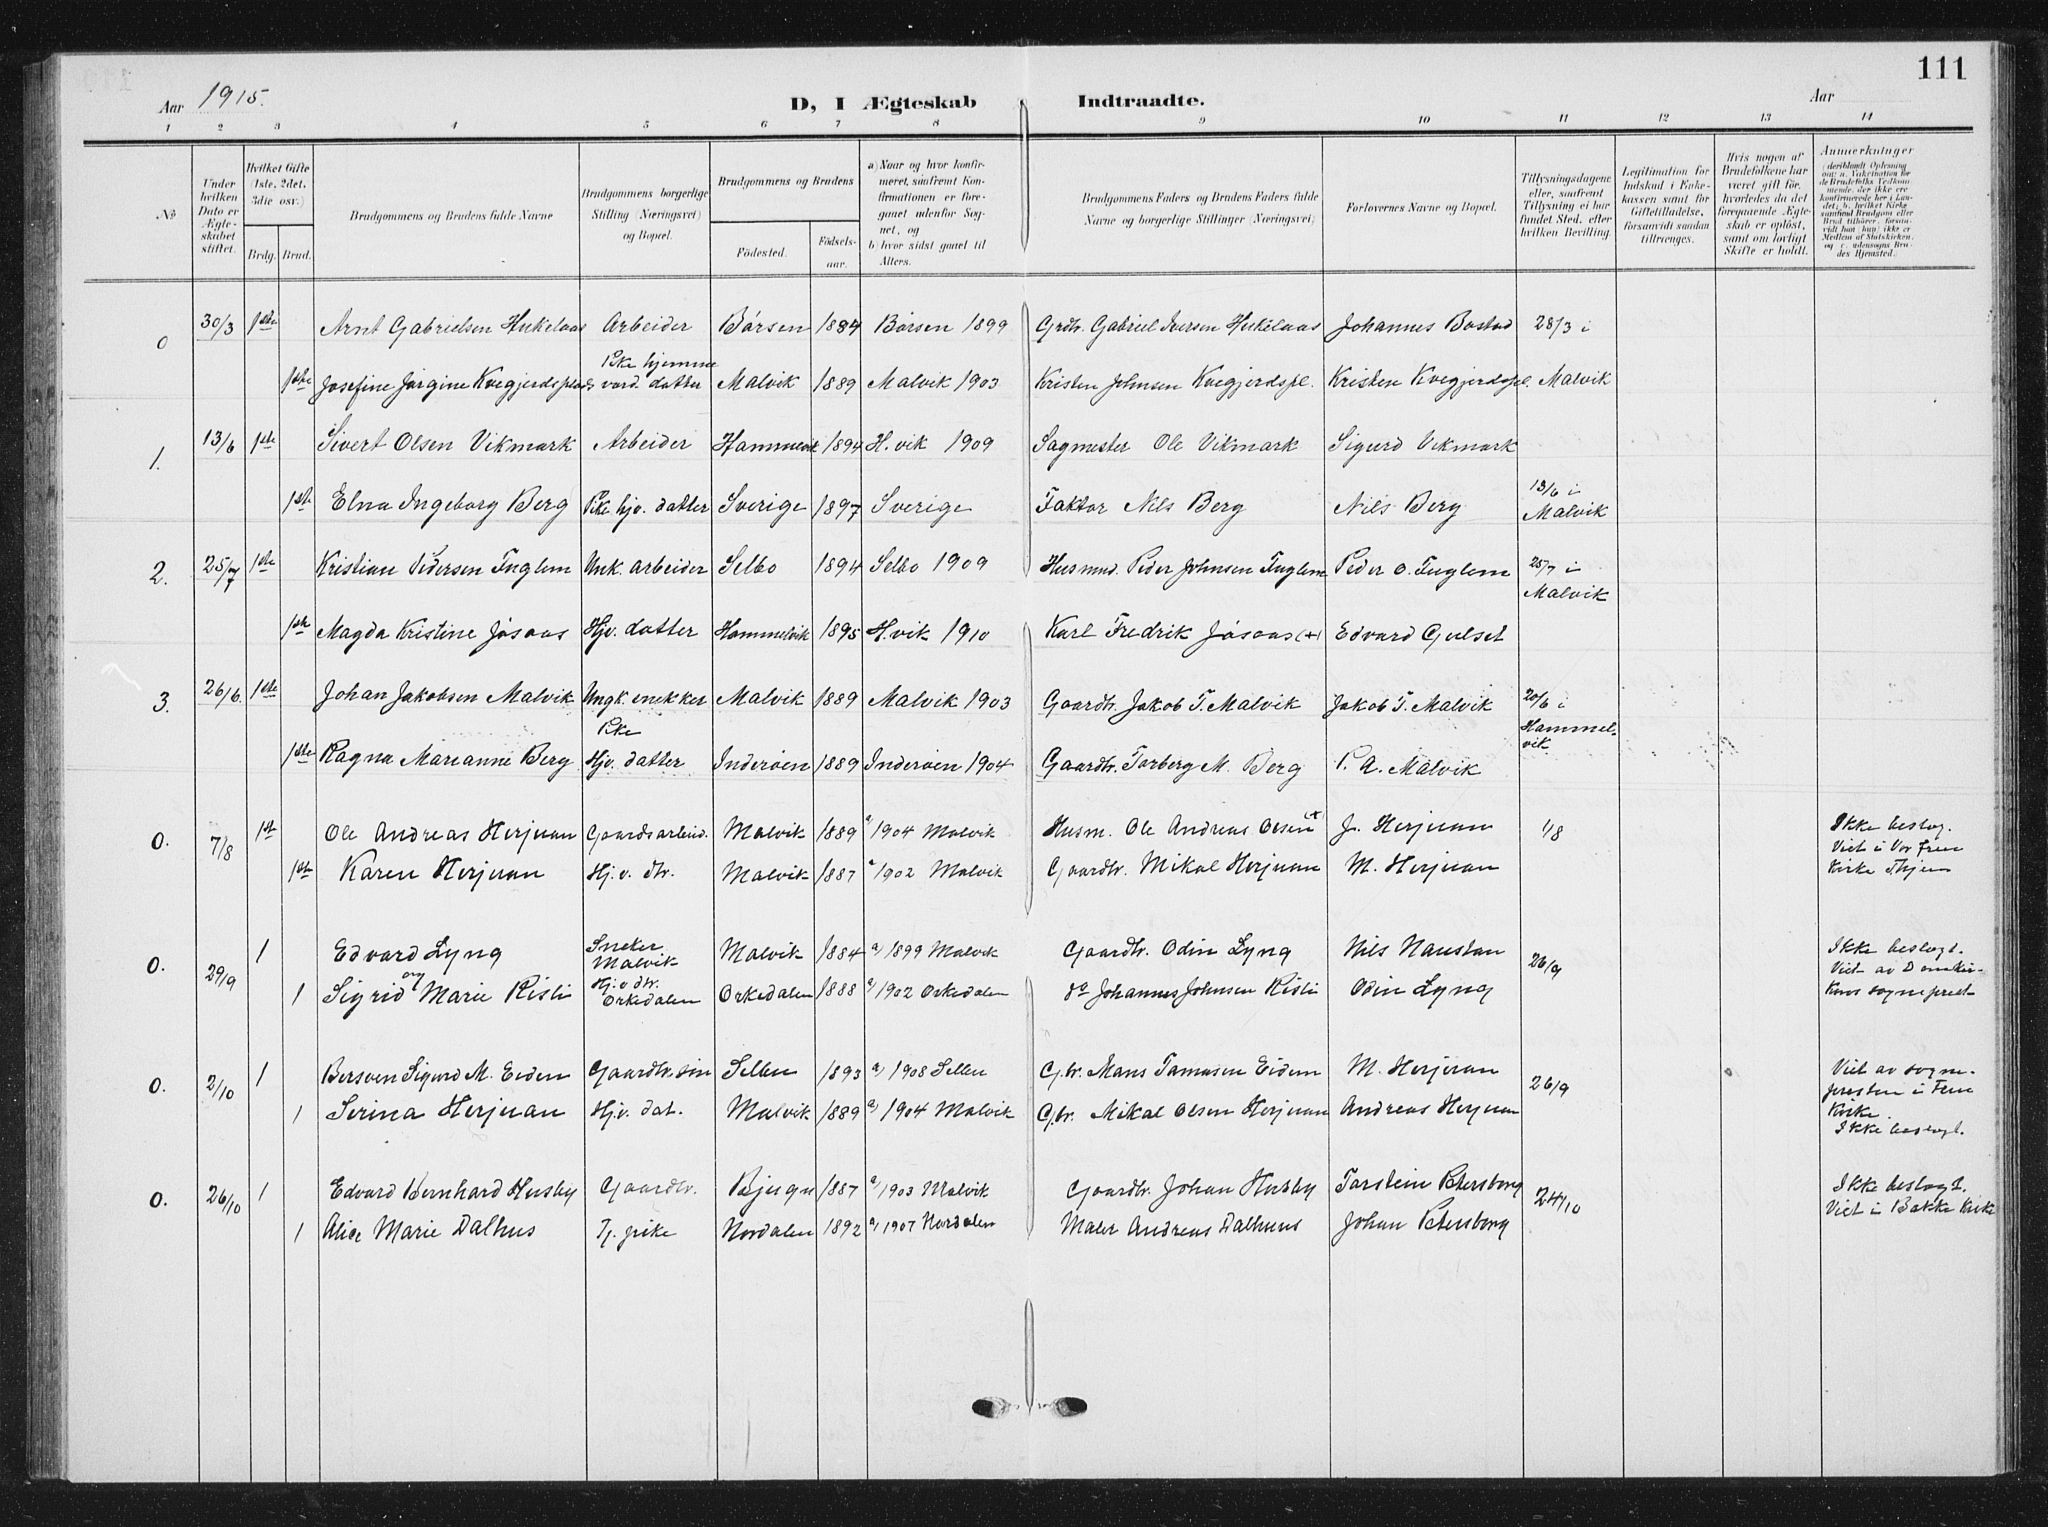 111
Aar 1915. D, I Ægteskab Indtraadte. Aar
1 2 3 4 5 6 7 8 9 10 11 12 13 14
No
Under hvilken Dato er Ægteskabet stiftet.
Hvilket Gifte (1ste, 2det, 3die osv.)
Brdg. Brud.
Brudgommens og Brudens fulde Navne
Brudgommens borgerlige Stilling (Næringsvei) og Bopæl.
Brudgommens og Brudens
Fødested. Fødsels-aar.
a) Naar og hvor konfirmeret, saafremt Konfirmationen er foregaaet udenfor Sognet, og
b) hvor sidst gaaet til Alters.
Brudgommens Faders og Brudens Faders fulde Navne og borgerlige Stillinger (Næringsvei)
Forlovernes Navne og Bopæl.
Tillysningsdagene eller, saafremt Tillysning ei har fundet Sted, efter hvilken Bevilling.
Legitimation for Indskud i Enkekassen samt for Giftetilladelse, forsaavidt saadan tiltrænges.
Hvis nogen af Brudefolkene har været gift før, hvorledes da det foregaaende Ægteskab er opløst, samt om lovligt Skifte er holdt.
Anmerkninger (deriblandt Oplysning om: a. Vakcination for de Brudefolks Vedkommende, der ikke ere konfirmerede her i Landet; b. hvilket Kirkesamfund Brudgom eller Brud tilhører, forsaavidt han (hun) ikke er Medlem af Statskirken, og c. udensogns Brudes Hjemsted.
0 30/3 1ste Arnt Gabrielsen Hukelaas Arbeider Børsen 1884 Børsen 1899 Grdbr. Gabriel Iversen Hukelaas Johannes Bostad 28/3 i
1ste Josefine Jørgine Kvegjerdsplads Pike hjemmevær. datter Malvik 1889 Malvik 1903 Kristen Johnsen Kvegjerdspl. Kristen Kvegjerdspl. Malvik
1. 13/6 1ste Sivert Olsen Vikmark Arbeider Hammelvik 1894 H.vik 1909 Sagmester Ole Vikmark Sigurd Vikmark
1ste Elna Ingeborg Berg Pike hjv. datter Sverige 1897 Sverige Faktor Nils Berg Nils Berg 13/6 i Malvik
2. 25/7 1ste Kristian Pedersen Fuglem Unk. arbeider Selbo 1894 Selbo 1909 Husmnd. Peder Johnsen Fuglem Peder O. Fuglem 25/7 i Malvik
1ste Magda Kristine Jøsaas Hjv. datter Hommelvik 1895 H.vik 1910 Karl Fredrik Jøsaas (+) Edvard Gulset
3. 26/6. 1ste Johan Jakobsen Malvik Ungk. snekker Malvik 1889 Malvik 1903 Gaardbr. Jakob T. Malvik Jakob T. Malvik 20/6 i Hammelvik
1ste Ragna Marianne Berg Pike Hjv. datter Inderøen 1889 Inderøen 1904 Gaardbr. Torberg M. Berg P. A. Malvik
0. 7/8 1st Ole Andreas Herjuan Gaardsarbeid. Malvik 1889 a) 1904 Malvik Husm. Ole Andreas Olsen + J. Herjuan 1/8 Ikke beslog.
1st Karen Herjuan Hj. v. dtr. Malvik 1887 a) 1902 Malvik Gaardbr. Mikal Herjuan M. Herjuan Viet i Vor Frue Kirke Thjem
0. 29/9 1 Edvard Lyng Sneker Malvik Malvik 1884 a) 1899 Malvik Gaardbr. Odin Lyng Nils Naustan 26/9 Ikke beslogt.
1 Sigrid Marie Risli Hj. v. dtr. Orkedalen Orkedalen 1888 a) 1902 Orkedalen do Johannes Johnsen Risli Odin Lyng Viet av Domkirkens sogneprest
0. 2/10 1 Bersven Sigurd M. Eiden Gaardbr. søn Selbu 1893 a) 1908 Selbu G.br. Mons Tomassen Eidem M. Herjuan 26/9 Viet av sognepresten i Frue Kirke.
1 Serina Herjuan Hj.v. dat. Malvik 1889 a) 1904 Malvik G.br. Mikal Olsen Herjuan Andreas Herjuan Ikke beslogt.
0. 26/10 1 Edvard Bernhard Husby Gaardbr. Bjugn 1887 a) 1903 Malvik Gaardbr. Johan Husby Torstein Petersborg 24/10 Ikke beslogt.
1 Alice Marie Dalhus Tj. pike Nordalen 1892 a) 1907 Nordalen Maler Andreas Dalhuus Johan Petersborg Viet i Bakke Kirke